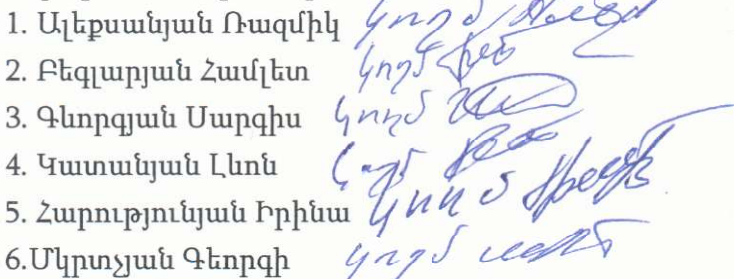 1. Ալեքսանյան Ռազմիկ կողմ
2. Բեգլարյան Համլետ կողմ
3. Գևորգյան Սարգիս կողմ
4. Կատանյան Լևոն կողմ
5. Հարությունյան Իրինա կողմ
6.Մկրտչյան Գեորգի կողմ